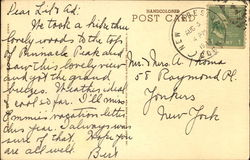 Dear Lid & Ad:
We took a hike thru
lovely woods to the top
of Pinnacle Peak and
saw this lovely view
and got the grand
breezes. Weather ideal
& cool so far. I'll miss
Tommie's vacation letter
this year. I always was
sure of that. Hope you
are all well.
Bert
HANDCOLORED
POST CARD
Mr. & Mrs. A. Thoma
58 Raymond Pl.
Yonkers
New York